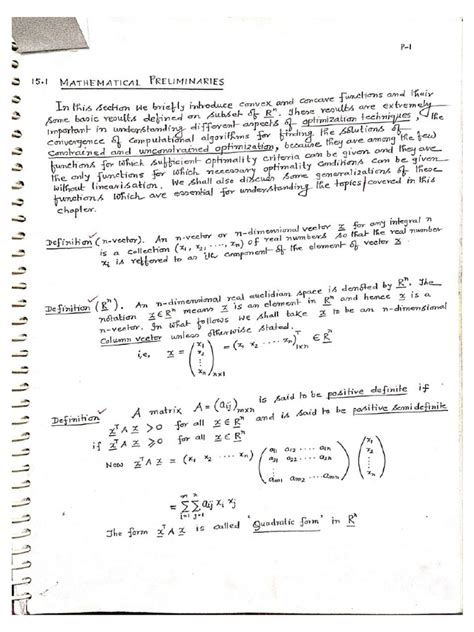 P-1
15.1 MATHEMATICAL PRELIMINARIES
In this section we briefly introduce convex and concave functions and their
some basic results defined on subset of Rⁿ. These results are extremely
important in understanding different aspects of optimization techniques, the
convergence of computational algorithms for finding the solutions of
constrained and unconstrained optimization, because they are among the few
functions for which sufficient optimality criteria can be given and they are
the only functions for which necessary optimality conditions can be given
without linearisation. We shall also discuss some generalizations of these
functions which are essential for understanding the topics covered in this
chapter.
Definition (n-vector). An n-vector or n-dimensional vector x for any integral n
is a collection (x₁, x₂, ..., xₙ) of real numbers so that the real number
xᵢ is reffered to as ith component of the element of vector x.
Definition (Rⁿ). An n-dimensional real euclidian space is denoted by Rⁿ. The
notation x ∈ Rⁿ means x is an element in Rⁿ and hence x is a
n-vector. In what follows we shall take x to be an n-dimensional
Column vector unless otherwise stated.
i.e, x = (x₁ x₂ ⋮ xₙ)ₙₓ₁ = (x₁ x₂ ... xₙ)ᵀ₁ₓₙ ∈ Rⁿ
Definition A matrix A = (aij)mxn is said to be positive definite if
xᵀA x > 0 for all x ∈ Rⁿ and is said to be positive semidefinite
if xᵀA x ≥ 0 for all x ∈ Rⁿ
Now xᵀA x = (x₁ x₂ ... xₙ) (a11 a12 .... a1n a21 a22 .... a2n ⋮ am1 am2 .... amn) (x₁ x₂ ⋮ xₙ)
= ΣΣ aij xi xj
The form xᵀA x is called "Quadratic form" in Rⁿ